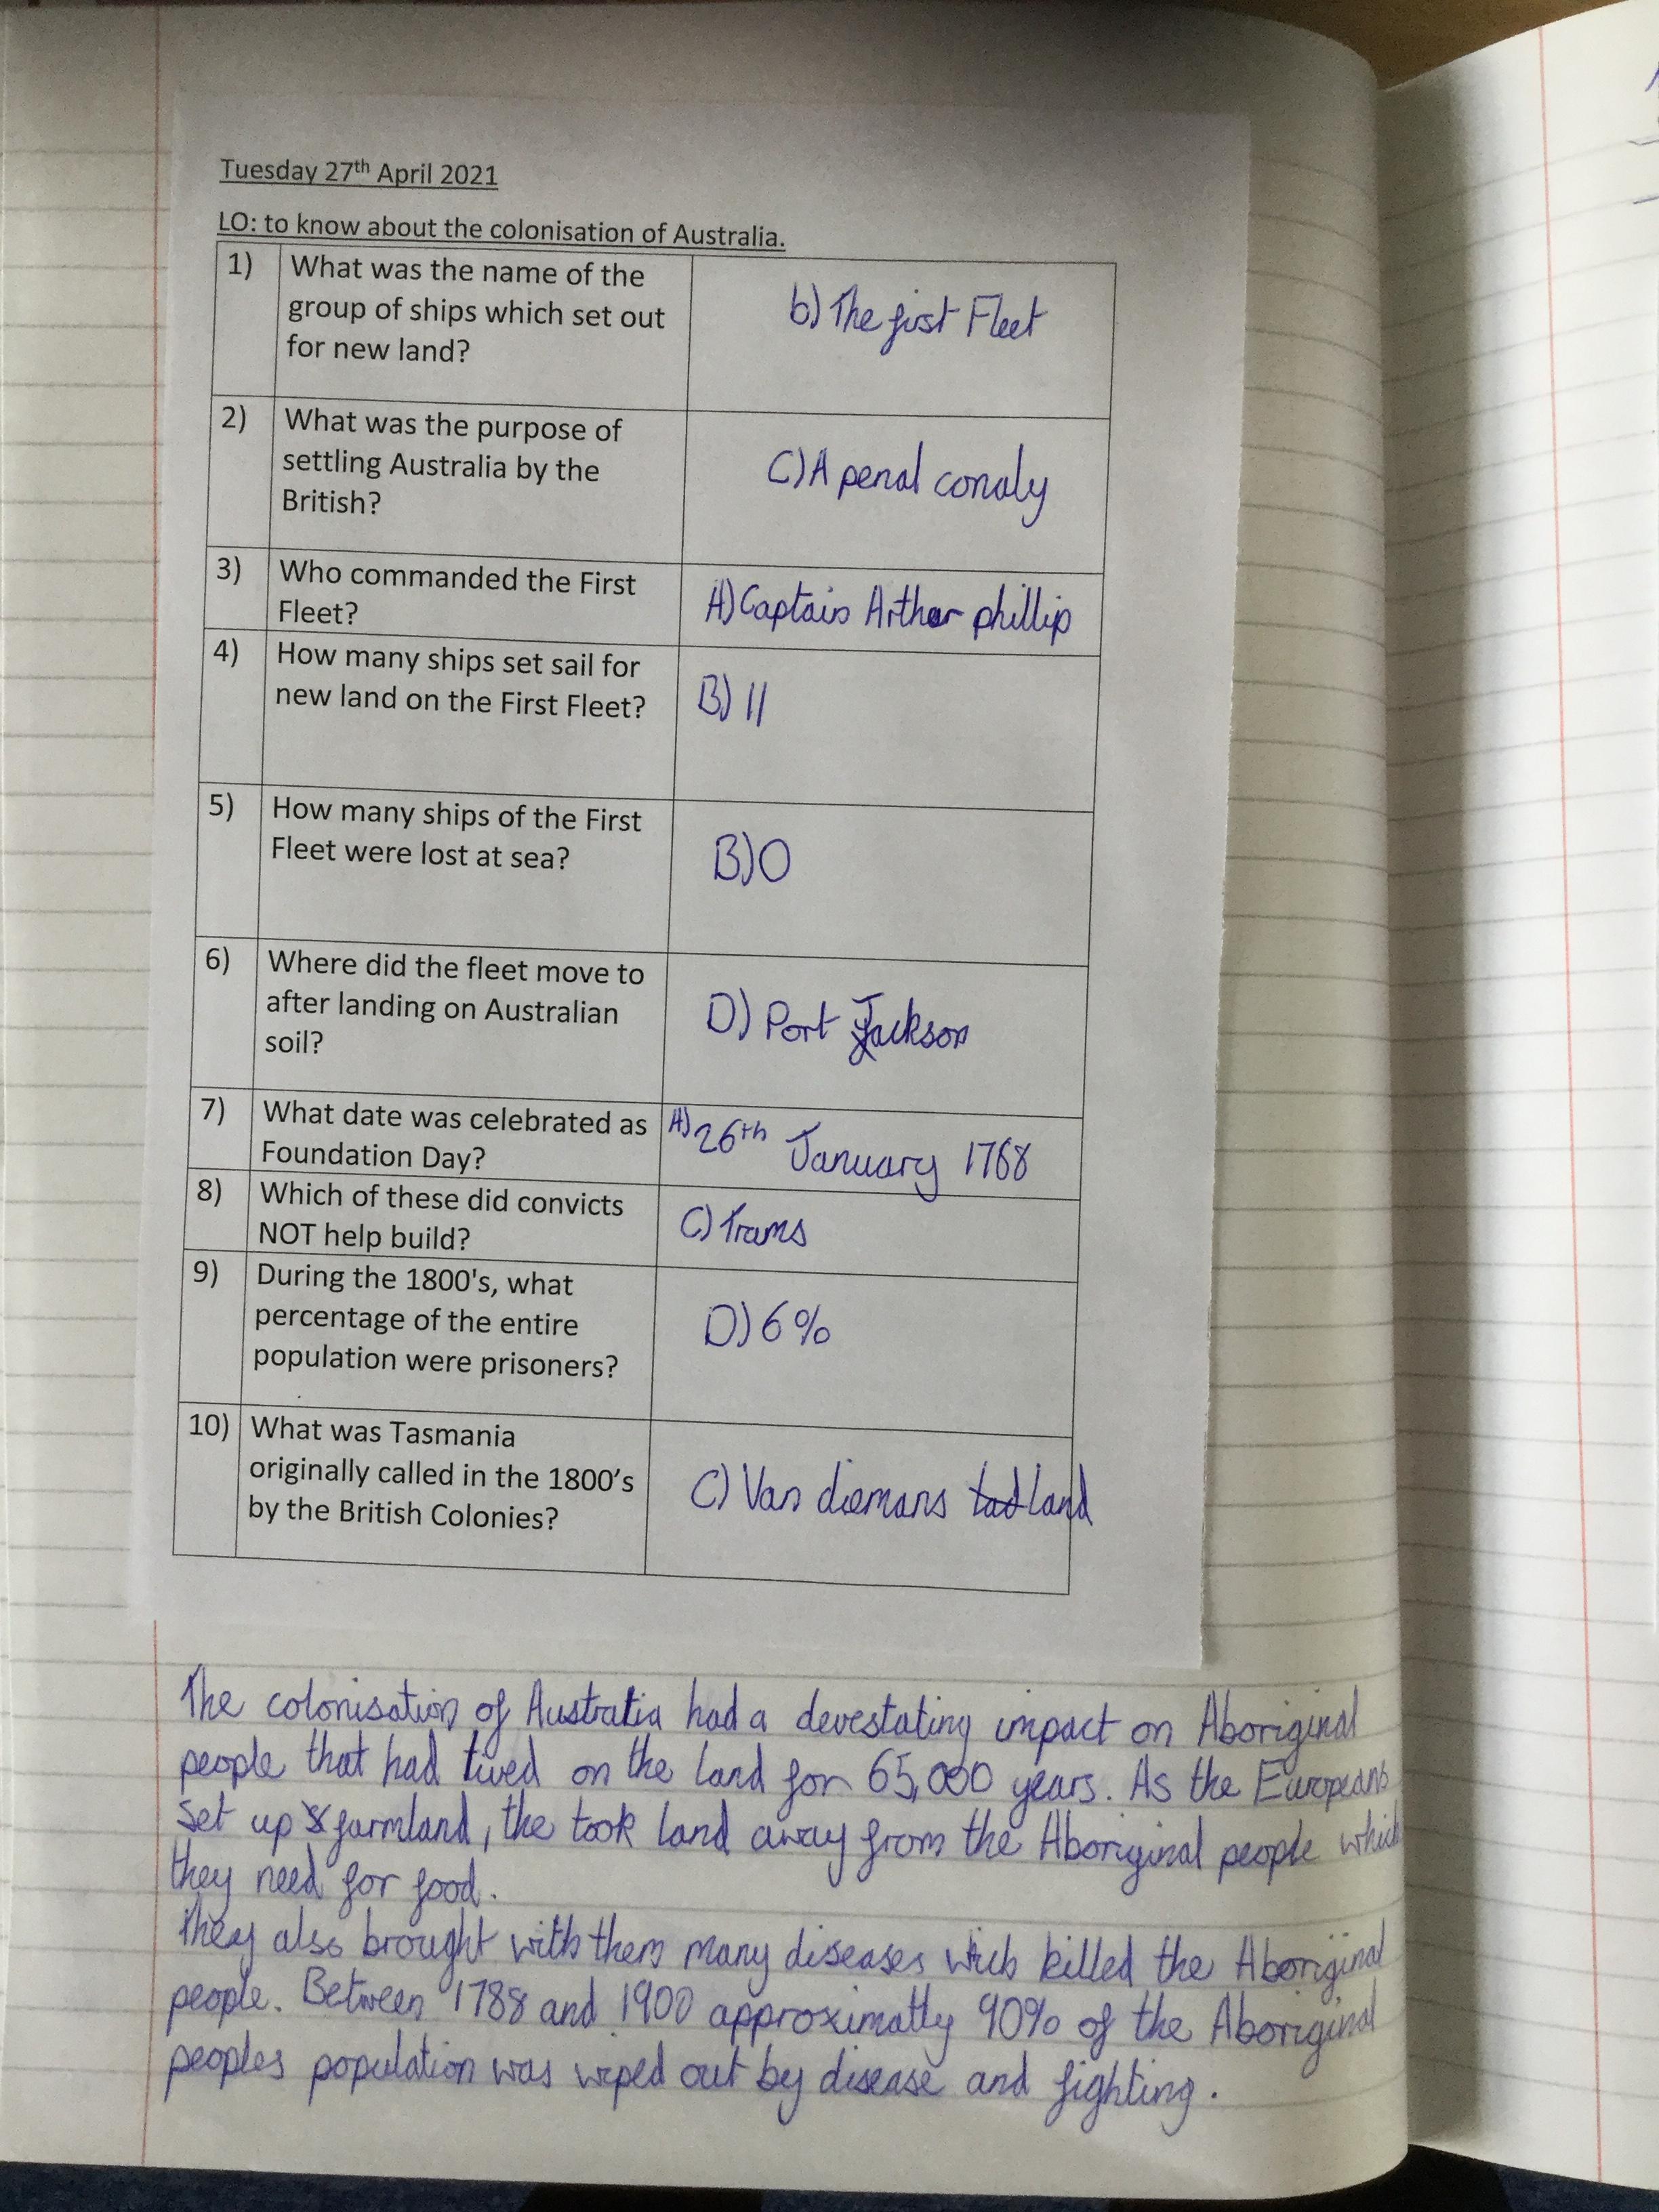 Tuesday 27th April 2021
LO: to know about the colonisation of Australia.
1) What was the name of the
group of ships which set out
for new land?
b) The first Fleet
2) What was the purpose of
settling Australia by the
British?
C) A penal conaly
3) Who commanded the First
Fleet?
A) Captain Arthur phillip
4) How many ships set sail for
new land on the First Fleet?
B) 11
5) How many ships of the First
Fleet were lost at sea?
B) 0
6) Where did the fleet move to
after landing on Australian
soil?
D) Port Jackson
7) What date was celebrated as
Foundation Day?
A) 26th January 1768
8) Which of these did convicts
NOT help build?
C) Trams
9) During the 1800's, what
percentage of the entire
population were prisoners?
D) 6%
10) What was Tasmania
originally called in the 1800's
by the British Colonies?
C) Van diemans land
The colonisation of Australia had a devestating impact on Aboriginal
people that had lived on the land for 65,000 years. As the Europeans
set up farmland, the took land away from the Aboriginal people which
they need for food.
They also brought with them many diseases wich killed the Aboriginal
people. Between 1788 and 1900 approximatly 90% of the Aboriginal
peoples population was wiped out by disease and fighting.